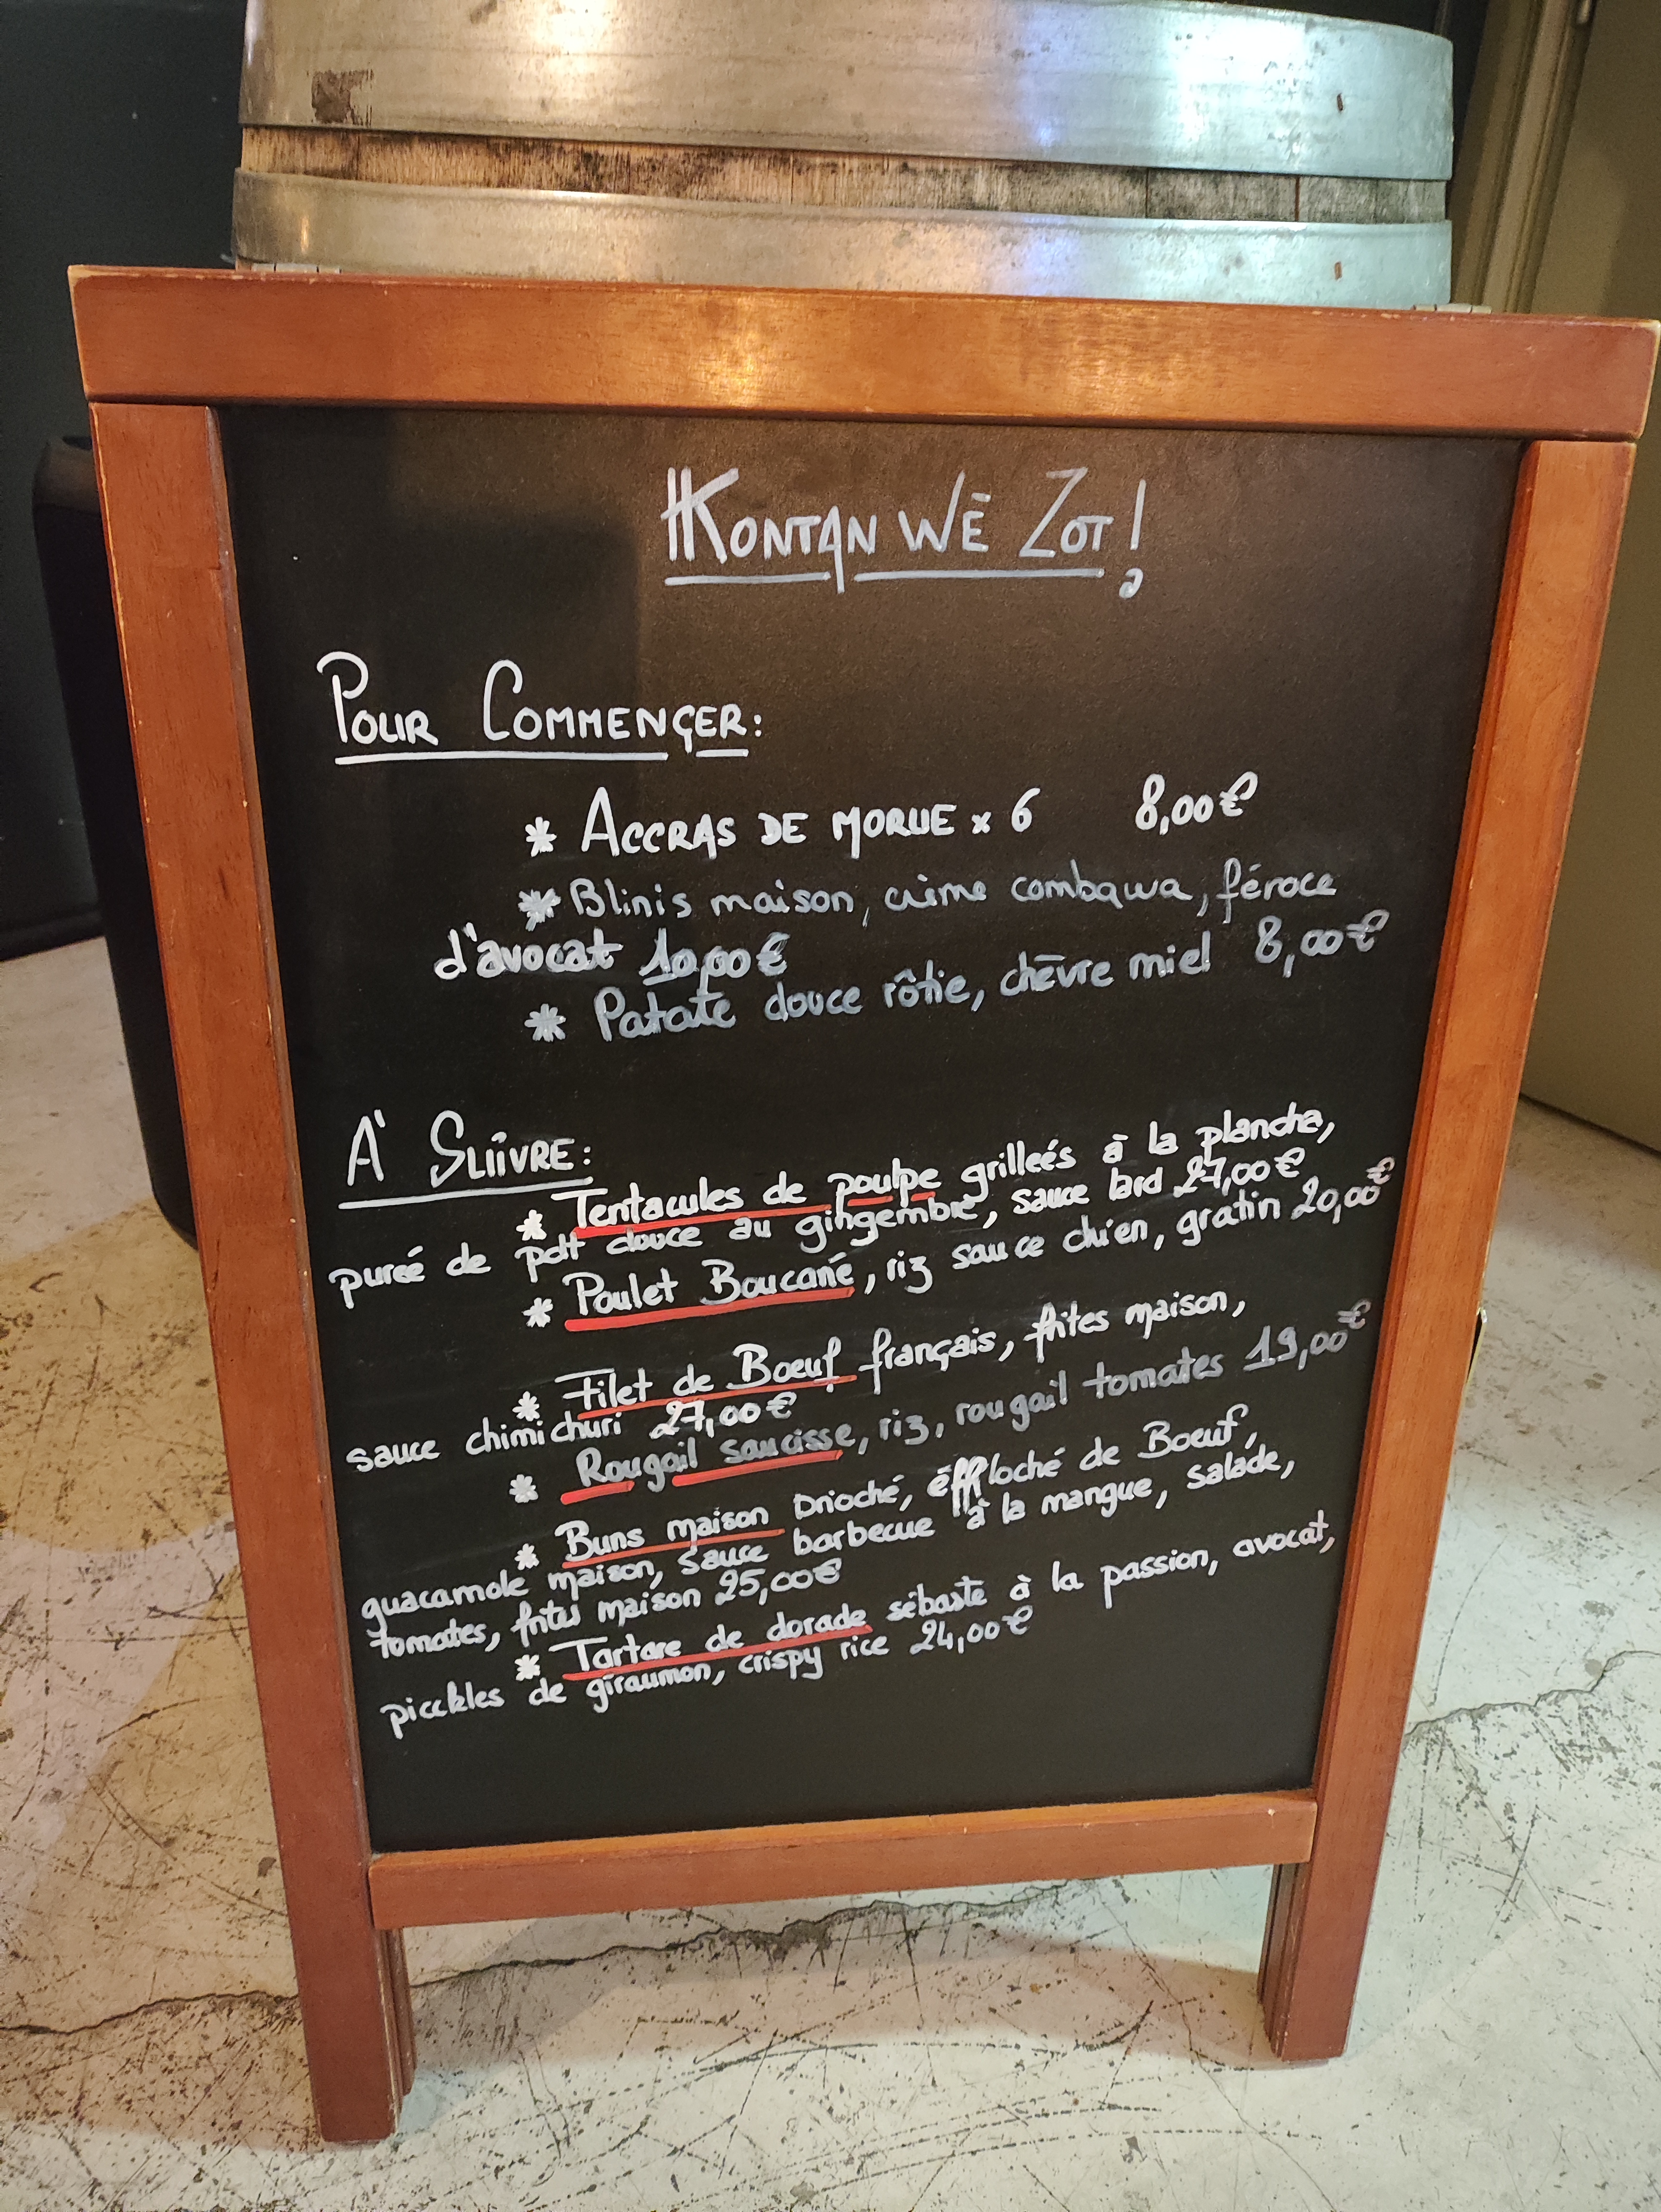 KONTAN WÉ ZOT !
POUR COMMENÇER :
* ACCRAS DE MORUE x 6 8,00€
* Blinis maison, crème combawa, féroce
d'avocat 10,00€
* Patate douce rôtie, chèvre miel 8,00€
A' SUIVRE :
* Tentacules de poulpe grilleés à la plancha,
pureé de pdt douce au gingembre, sauce lard 27,00€
* Poulet Boucané, riz sauce chien, gratin 20,00€
* Filet de Boeuf français, frites maison,
sauce chimichuri 27,00€
* Rougail saucisse, riz, rougail tomates 19,00€
* Buns maison brioché, éffloché de Boeuf,
guacamole maison, sauce barbecue à la mangue, salade,
tomates, frites maison 25,00€
* Tartare de dorade sébaste à la passion, avocat,
picckles de giraumon, crispy rice 24,00€